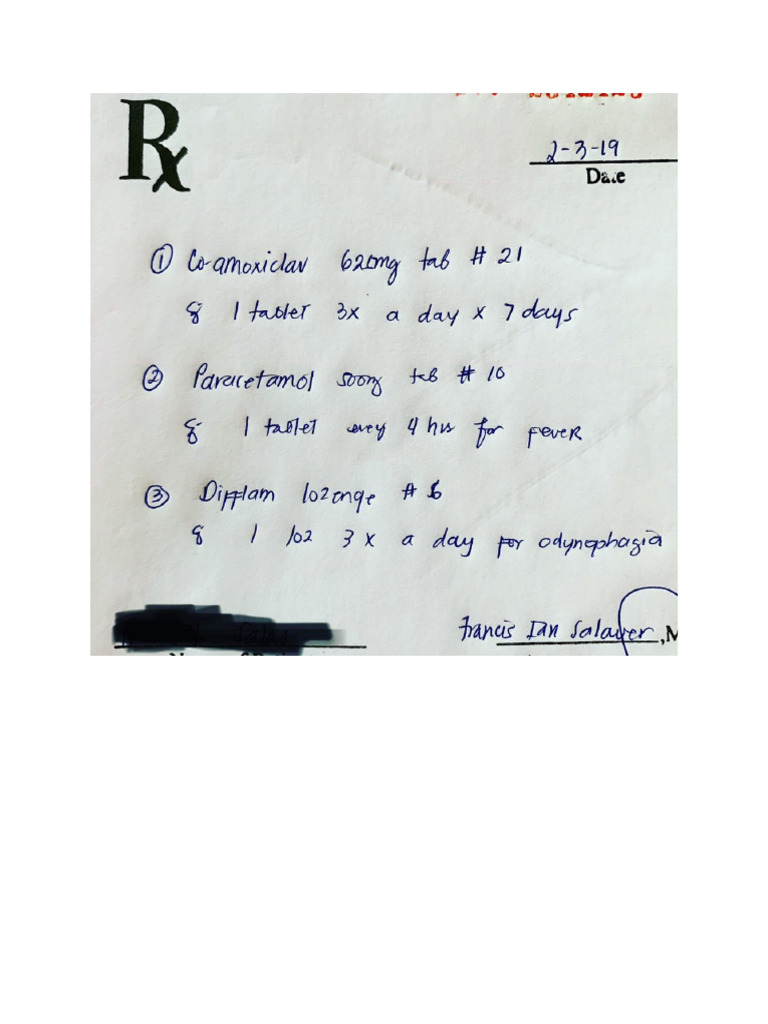 Rx
2-3-19
Date
① Co-amoxiclav 625mg tab # 21
1 tablet 3x a day x 7 days
② Paracetamol 500mg tab # 10
1 tablet every 4 hrs for fever
③ Difflam lozenge # 6
1 loz 3 x a day for odynophagia
Francis Ian Salaver, M